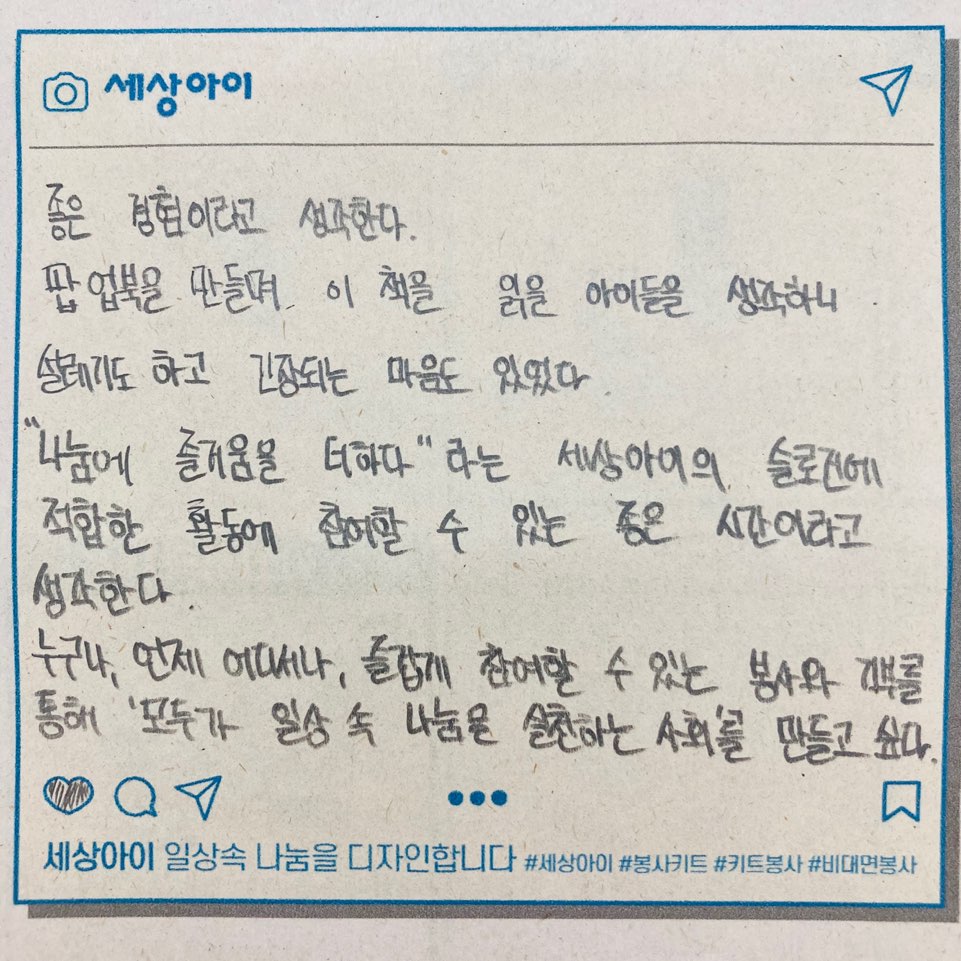 세상아이
좋은 경험이라고 생각한다.
팝업북을 만들며 이 책을 읽을 아이들을 생각하니
설레기도 하고 긴장되는 마음도 있었다
"나눔에 즐거움을 더하다"라는 세상아이의 슬로건에
적합한 활동에 참여할 수 있는 좋은 시간이라고
생각한다.
누구나, 언제 어디서나, 즐겁게 참여할 수 있는 봉사와 기부를
통해 '모두가 일상 속 나눔을 실천하는 사회'를 만들고 싶다.
세상아이 일상속 나눔을 디자인합니다 #세상아이 #봉사키트 #키트봉사 #비대면봉사